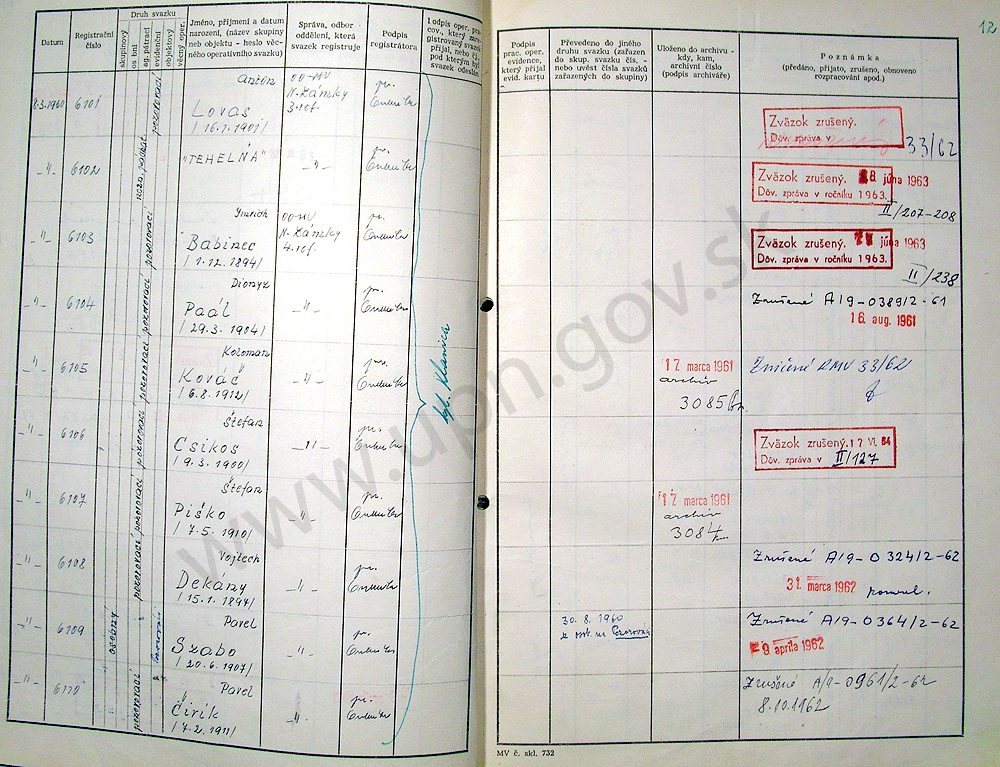 12
Datum
Registrační číslo
Druh svazku
skupinový
osobní
ag. pátrací
evidenční
objektový
věcný oper.
Jméno, příjmení a datum
narození, (název skupiny
neb objektu - heslo vě-
cného operativního svazku)
Správa, odbor
oddělení, která
svazek registruje
Podpis
registrátora
Podpis
prac. oper.
evidence,
který přijal
evid. kartu
Převedeno do jiného
druhu svazku (zařazen
do skup. svazku čís. -
nebo uvést čísla svazků
zařazených do skupiny)
Uloženo do archivu -
kdy, kam,
archivní číslo
(podpis archiváře)
Poznámka
(předáno, přijato, zrušeno, obnoveno
rozpracování apod.)
8.3.1960 6101 pozorovací Anton
Lovas
/16.1.1901/
OO-MV
N. Zámky
3. ref.
Zväzok zrušený.
Dôv. zpráva v
33/62
-"- 6102
"TEHELŇA" -"-
Zväzok zrušený. 28 júna 1963
Dôv. zpráva v ročníku 1963.
II/207-208
-"- 6103 pozorovací Imrich
Babinec
/1.12.1894/
OO-MV
N. Zámky
4. ref.
Zväzok zrušený. júna 1963
Dôv. zpráva v ročníku 1963.
II/238
-"- 6104 pozorovací Dionýz
Paál
/29.3.1904/
-"-
Zrušené A/9-0389/2-61
16. aug. 1961
-"- 6105 pozorovací Koloman
Kováč
/6.8.1912/
-"-
17. marca 1961
archív
3085
Zničené RMV 33/62
-"- 6106 pozorovací Štefan
Csikos
/9.3.1900/
-"-
Zväzok zrušený. 17 VI. 64
Dôv. zpráva v II/127
-"- 6107 pozorovací Štefan
Piško
/7.5.1910/
-"-
17. marca 1961
archív
3084
-"- 6108 pozorovací Vojtech
Dekány
/15.1.1894/
-"-
Zrušené A/9-0324/2-62
31. marca 1962
-"- 6109 osobný Pavel
Szabo
/20.6.1907/
-"-
30.8.1960
Zrušené A/9-0364/2-62
9. apríla 1962
-"- 6110 pozorovací Pavel
Čirik
/7.2.1911/
-"-
Zrušené A/9-0961/2-62
8.10.1962
MV č. skl. 732
www.upn.gov.sk